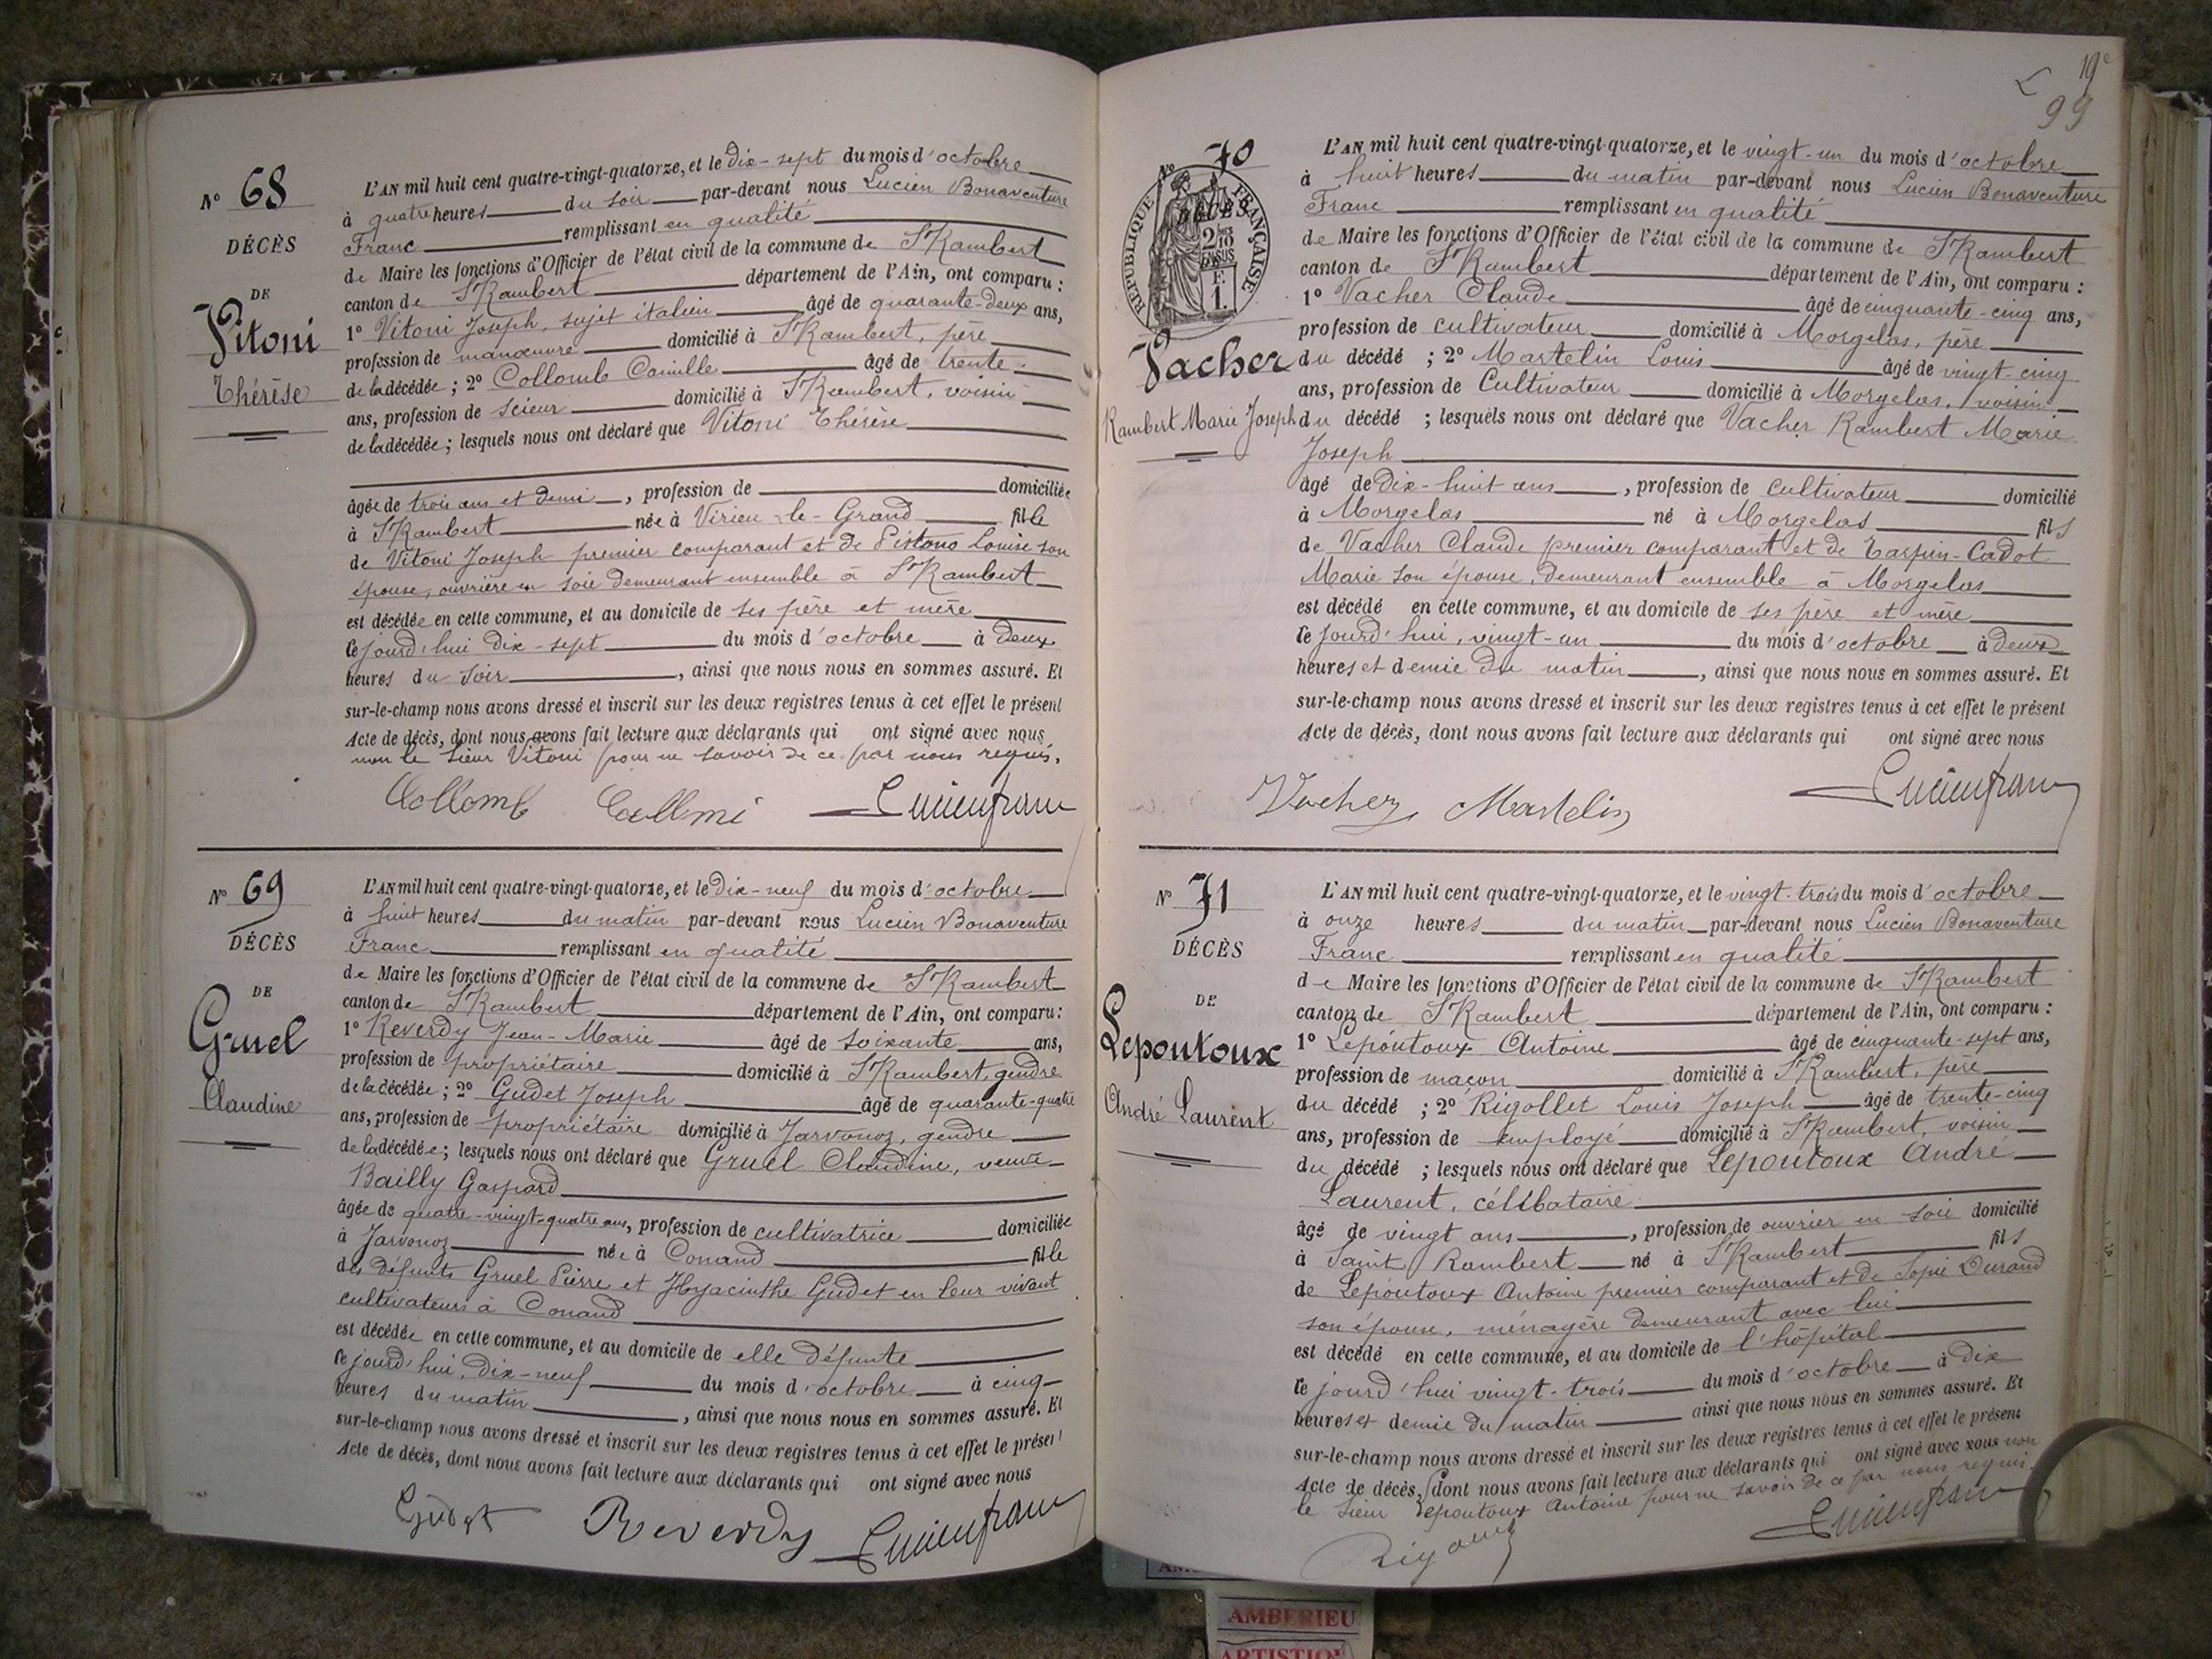 N° 68
DÉCÈS
DE
Vitoni
Thérèse
L'AN mil huit cent quatre-vingt-quatorze, et le dix-sept du mois d'octobre
à quatre heures du soir par-devant nous Lucien Bonaventure
Franc remplissant en qualité
de Maire les fonctions d'Officier de l'état civil de la commune de St Rambert
canton de St Rambert département de l'Ain, ont comparu :
1° Vitoni Joseph, sujet italien âgé de quarante-deux ans,
profession de manœuvre domicilié à St Rambert, père
de la décédée ; 2° Collomb Camille âgé de trente
ans, profession de scieur domicilié à St Rambert, voisin
de la décédée ; lesquels nous ont déclaré que Vitoni Thérèse
âgée de trois ans et demi, profession de domiciliée
à St Rambert née à Virieu-le-Grand fille
de Vitoni Joseph premier comparant et de Pistono Louise son
épouse, ouvrière en soie demeurant ensemble à St Rambert
est décédée en cette commune, et au domicile de ses père et mère
ce jourd'hui dix-sept du mois d'octobre à deux
heures du soir, ainsi que nous nous en sommes assuré. Et
sur-le-champ nous avons dressé et inscrit sur les deux registres tenus à cet effet le présent
Acte de décès, dont nous avons fait lecture aux déclarants qui ont signé avec nous
non le sieur Vitoni pour ne savoir de ce par nous requis.
Collomb Lucien franc
N° 69
DÉCÈS
DE
Gruel
Claudine
L'AN mil huit cent quatre-vingt-quatorze, et le dix-neuf du mois d'octobre
à huit heures du matin par-devant nous Lucien Bonaventure
Franc remplissant en qualité
de Maire les fonctions d'Officier de l'état civil de la commune de St Rambert
canton de St Rambert département de l'Ain, ont comparu :
1° Reverdy Jean-Marie âgé de soixante ans,
profession de propriétaire domicilié à St Rambert, gendre
de la décédée ; 2° Gudet Joseph âgé de quarante-quatre
ans, profession de propriétaire domicilié à Javornoz, gendre
de la décédée ; lesquels nous ont déclaré que Gruel Claudine, veuve
Bailly Gaspard
âgée de quatre-vingt-quatre ans, profession de cultivatrice domiciliée
à Javornoz née à Conand fille
des défunts Gruel Pierre et Hyacinthe Gudet en leur vivant
cultivateurs à Conand
est décédée en cette commune, et au domicile de elle défunte
ce jourd'hui, dix-neuf du mois d'octobre à cinq
heures du matin, ainsi que nous nous en sommes assuré. Et
sur-le-champ nous avons dressé et inscrit sur les deux registres tenus à cet effet le présent
Acte de décès, dont nous avons fait lecture aux déclarants qui ont signé avec nous
Gudet Reverdy Lucien franc
19e
99
N° 70
RÉPUBLIQUE FRANÇAISE
DÉCÈS
2/10 EN SUS
F.
1.
Vacher
Rambert Marie Joseph
L'AN mil huit cent quatre-vingt-quatorze, et le vingt-un du mois d'octobre
à huit heures du matin par-devant nous Lucien Bonaventure
Franc remplissant en qualité
de Maire les fonctions d'Officier de l'état civil de la commune de St Rambert
canton de St Rambert département de l'Ain, ont comparu :
1° Vacher Claude âgé de cinquante-cinq ans,
profession de cultivateur domicilié à Morgelas, père
du décédé ; 2° Martelin Louis âgé de vingt-cinq
ans, profession de Cultivateur domicilié à Morgelas, voisin
du décédé ; lesquels nous ont déclaré que Vacher Rambert Marie
Joseph
âgé de dix-huit ans, profession de cultivateur domicilié
à Morgelas né à Morgelas fils
de Vacher Claude premier comparant et de Tarpin-Cadot
Marie son épouse, demeurant ensemble à Morgelas
est décédé en cette commune, et au domicile de ses père et mère
ce jourd'hui, vingt-un du mois d'octobre à deux
heures et demie du matin, ainsi que nous nous en sommes assuré. Et
sur-le-champ nous avons dressé et inscrit sur les deux registres tenus à cet effet le présent
Acte de décès, dont nous avons fait lecture aux déclarants qui ont signé avec nous
Vacher Martelin Lucien franc
N° 71
DÉCÈS
DE
Lepoutoux
André Laurent
L'AN mil huit cent quatre-vingt-quatorze, et le vingt-trois du mois d'octobre
à onze heures du matin par-devant nous Lucien Bonaventure
Franc remplissant en qualité
de Maire les fonctions d'Officier de l'état civil de la commune de St Rambert
canton de St Rambert département de l'Ain, ont comparu :
1° Lepoutoux Antoine âgé de cinquante-sept ans,
profession de maçon domicilié à St Rambert, père
du décédé ; 2° Rigollet Louis Joseph âgé de trente-cinq
ans, profession de employé domicilié à St Rambert, voisin
du décédé ; lesquels nous ont déclaré que Lepoutoux André
Laurent, célibataire
âgé de vingt ans, profession de ouvrier en soie domicilié
à Saint Rambert né à St Rambert fils
de Lepoutoux Antoine premier comparant et de Sopie Durand
son épouse, ménagère demeurant avec lui
est décédé en cette commune, et au domicile de l'hôpital
ce jourd'hui vingt-trois du mois d'octobre à dix
heures et demie du matin ainsi que nous nous en sommes assuré. Et
sur-le-champ nous avons dressé et inscrit sur les deux registres tenus à cet effet le présent
Acte de décès, dont nous avons fait lecture aux déclarants qui ont signé avec nous non
le sieur Lepoutoux Antoine pour ne savoir de ce par nous requis
Lucien franc
AMBERIEU
ARTISTIQ